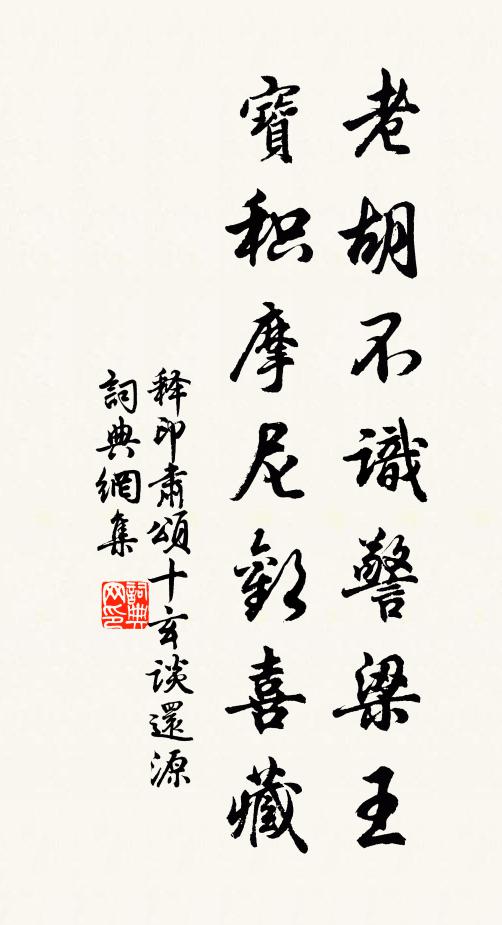 老胡不識警梁王
寶积摩尼歡喜藏
释印肅頌十玄談還源
詞典網集
詞典网印